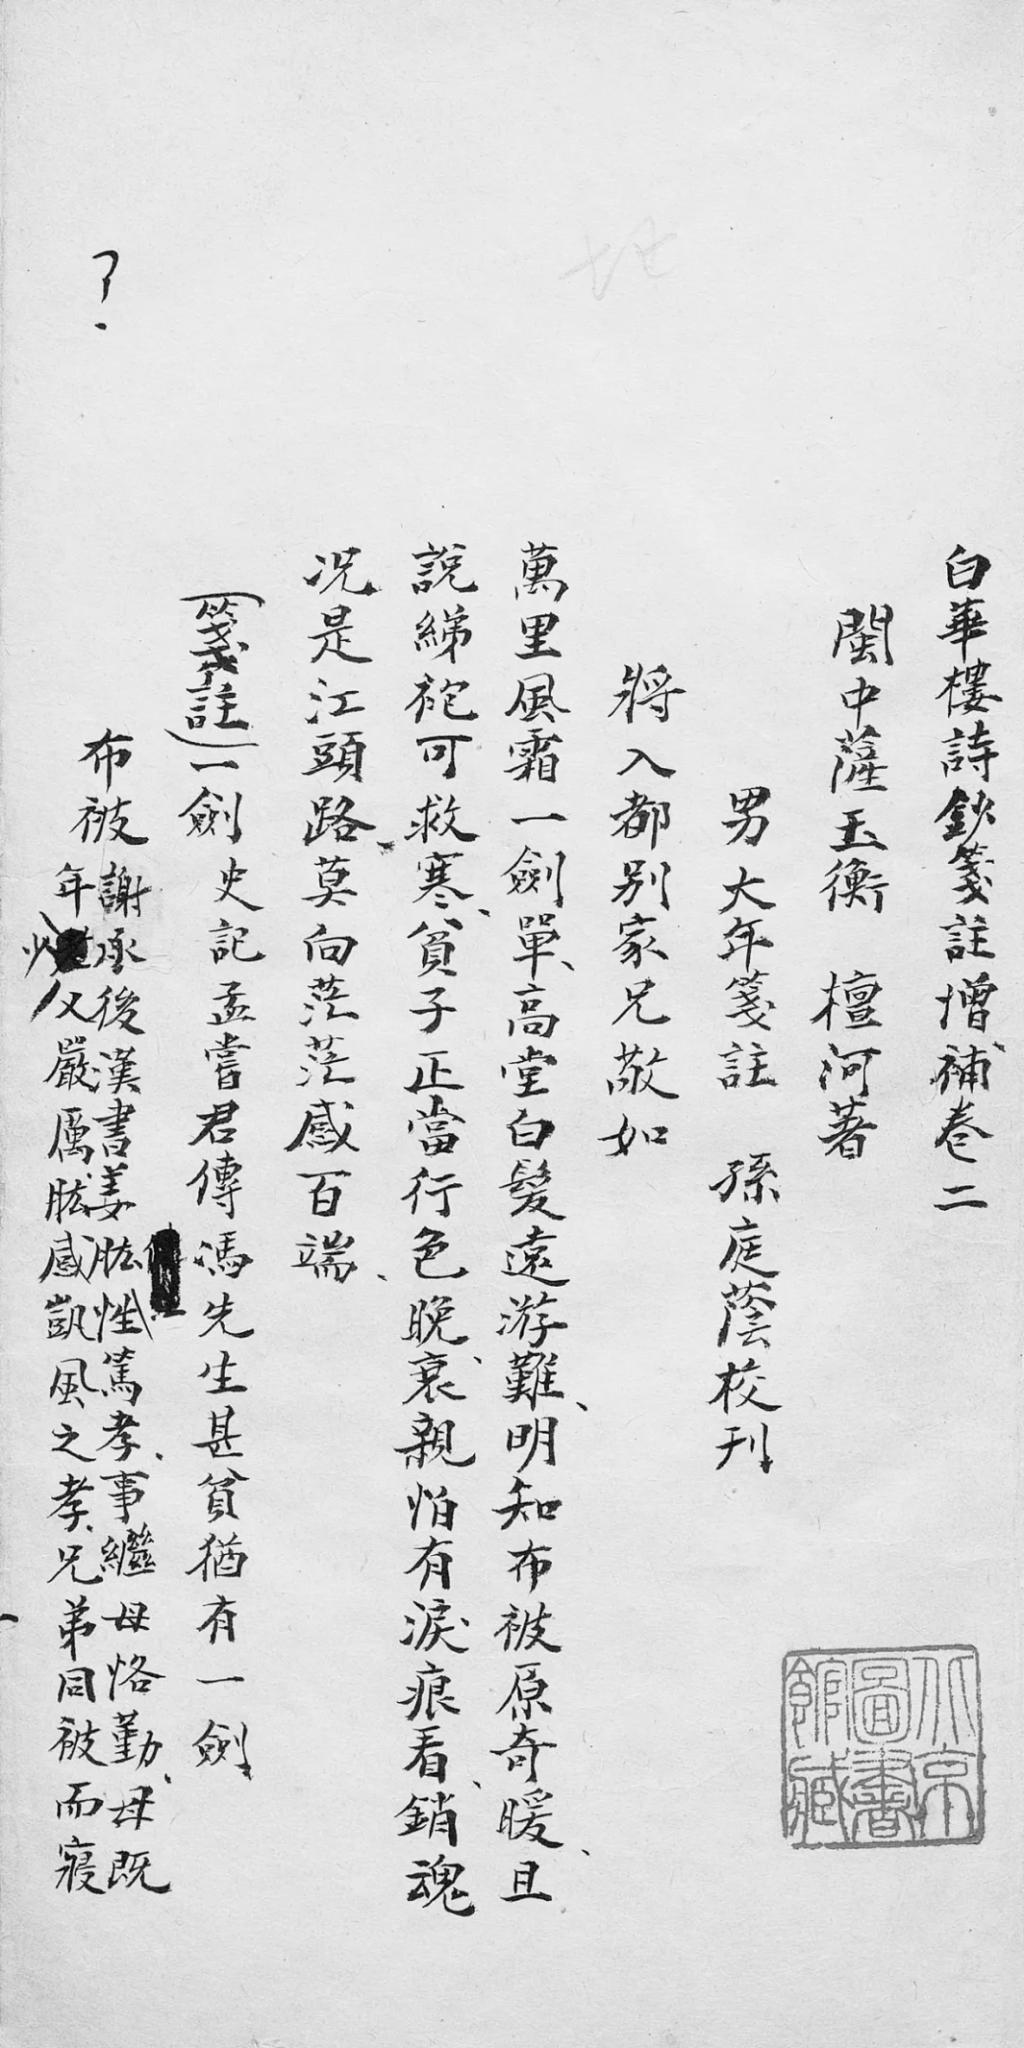 白華樓詩鈔箋註增補卷二
閩中薩玉衡 檀河著
男大年箋註 孫庭蔭校刊
將入都別家兄敬如
萬里風霜一劍單、高堂白髮遠游難、明知布被原奇暖、且
說綈袍可救寒、貧子正當行色晚、衰親怕有淚痕看、銷魂
况是江頭路、莫向茫茫感百端、
(箋註)一劍 史記孟嘗君傳馮先生甚貧猶有一劍
布被 謝承後漢書姜肱性篤孝、事繼母恪勤、母既
年少父嚴厲肱感凱風之孝、兄弟同被而寢
?
北京圖書館藏